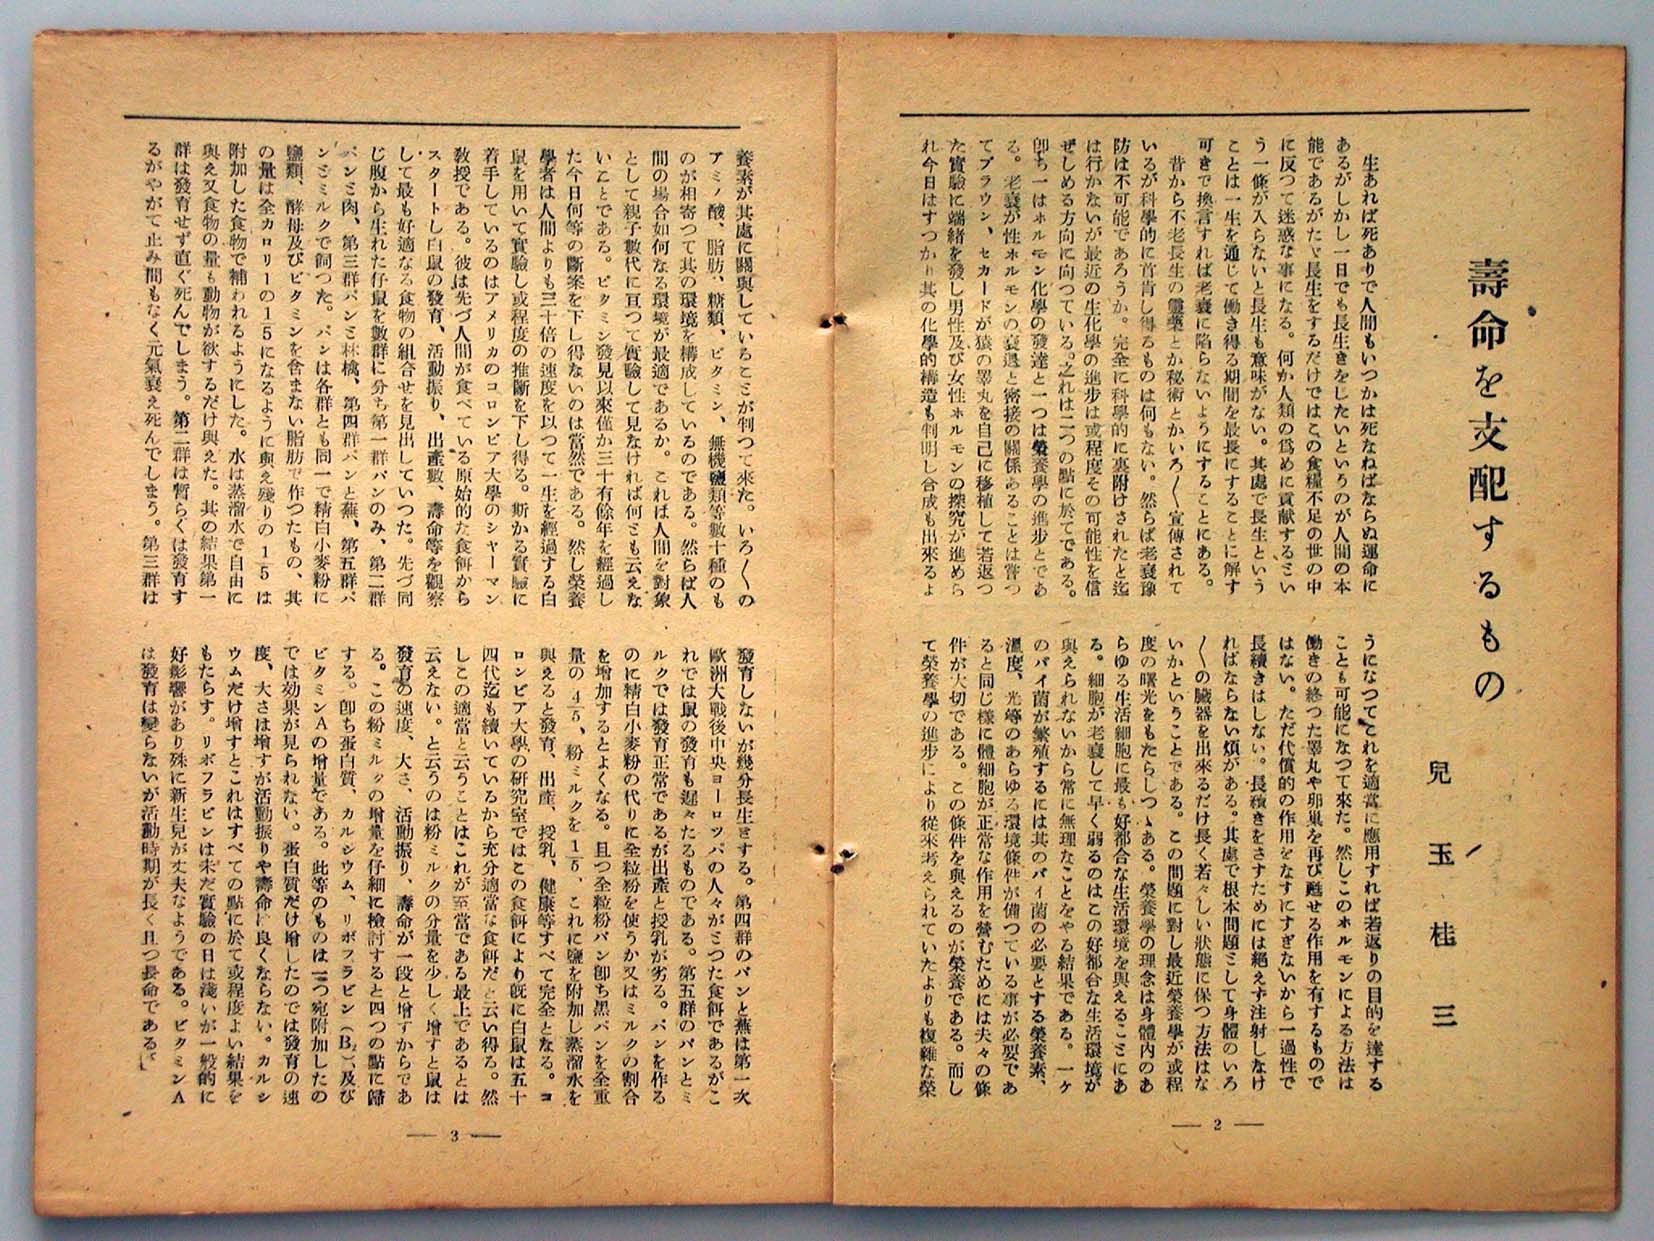 壽命を支配するもの
兒玉桂三
生あれば死ありで人間もいつかは死なねばならぬ運命に
あるがしかし一日でも長生きをしたいというのが人間の本
能であるがたゞ長生をするだけではこの食糧不足の世の中
に反つて迷惑な事になる。何か人類の爲めに貢献するとい
う一條が入らないと長生も意味がない。其處で長生という
ことは一生を通じて働き得る期間を最長にすることに解す
可きで換言すれば老衰に陷らないようにすることにある。
昔から不老長生の靈藥とか秘術とかいろ〳〵宣傳されて
いるが科學的に首肯し得るものは何もない。然らば老衰豫
防は不可能であろうか。完全に科學的に裏附けされたと迄
は行かないが最近の生化學の進步は或程度その可能性を信
ぜしめる方向に向つている。之れは二つの點に於てである。
卽ち一はホルモン化學の發達と一つは榮養學の進步とであ
る。老衰が性ホルモンの衰退と密接の關係あることは嘗つ
てブラウン、セカードが猿の睾丸を自己に移植して若返つ
た實驗に端緖を發し男性及び女性ホルモンの探究が進めら
れ今日はすつかり其の化學的構造も判明し合成も出來るよ
うになつてこれを適當に應用すれば若返りの目的を達する
ことも可能になつて來た。然しこのホルモンによる方法は
働きの終つた睾丸や卵巢を再び甦せる作用を有するもので
はない。ただ代償的の作用をなすにすぎないから一過性で
長續きはしない。長續きをさすためには絕えず注射しなけ
ればならない煩がある。其處で根本問題として身體のいろ
〳〵の臟器を出來るだけ長く若々しい狀態に保つ方法はな
いかということである。この問題に對し最近榮養學が或程
度の曙光をもたらしつゝある。榮養學の理念は身體內のあ
らゆる生活細胞に最も好都合な生活環境を與えることにあ
る。細胞が老衰して早く弱るのはこの好都合な生活環境が
與えられないから常に無理なことをやる結果である。一ケ
のバイ菌が繁殖するには其のバイ菌の必要とする榮養素、
溫度、光等のあらゆる環境條件が備つている事が必要であ
ると同じ樣に體細胞が正常な作用を營むためには夫々の條
件が大切である。この條件を與えるのが榮養である。而し
て榮養學の進步により從來考えられていたよりも複雜な榮
— 2 —
養素が其處に關與していることが判つて來た。いろ〳〵の
アミノ酸、脂肪、糖類、ビタミン、無機鹽類等數十種のも
のが相寄つて其の環境を構成しているのである。然らば人
間の場合如何なる環境が最適であるか。これば人間を對象
として親子數代に亘つて實驗して見なければ何とも云えな
いことである。ビタミン發見以來僅か三十有餘年を經過し
た今日何等の斷案を下し得ないのは當然である。然し榮養
學者は人間よりも三十倍の速度を以つて一生を經過する白
鼠を用いて實驗し或程度の推斷を下し得る。斯かる實驗に
着手しているのはアメリカのコロンビア大學のシャーマン
敎授である。彼は先づ人間が食べている原始的な食餌から
スタートし白鼠の發育、活動振り、出產數、壽命等を觀察
して最も好適なる食物の組合せを見出していつた。先づ同
じ腹から生れた仔鼠を數群に分ち第一群パンのみ、第二群
パンと肉、第三群パンと林檎、第四群パンと蕪、第五群パ
ンとミルクで飼つた。パンは各群とも同一で精白小麥粉に
鹽類、酵母及びビタミンを含まない脂肪で作つたもの、其
の量は全カロリーの1/5になるように與え殘りの1/5は
附加した食物で補われるようにした。水は蒸溜水で自由に
與え又食物の量も動物が欲するだけ與えた。其の結果第一
群は發育せず直ぐ死んでしまう。第二群は暫らくは發育す
るがやがて止み間もなく元氣衰え死んでしまう。第三群は
發育しないが幾分長生きする。第四群のパンと蕪は第一次
歐洲大戰後中央ヨーロツパの人々がとつた食餌であるがこ
れでは鼠の發育も遲々たるものである。第五群のパンとミ
ルクでは發育正常であるが出產と授乳が劣る。パンを作る
のに精白小麥粉の代りに全粒粉を使うか又はミルクの割合
を增加するとよくなる。且つ全粒粉パン卽ち黑パンを全重
量の4/5、粉ミルクを1/5、これに鹽を附加し蒸溜水を
與えると發育、出產、授乳、健康等すべて完全となる。コ
ロンビア大學の硏究室ではこの食餌により旣に白鼠は五十
四代迄も續いているから充分適當な食餌だと云い得る。然
しこの適當と云うことはこれが至當である最上であるとは
云えない。と云うのは粉ミルクの分量を少しく增すと鼠は
發育の速度、大さ、活動振り、壽命が一段と增すからであ
る。この粉ミルクの增量を仔細に檢討すると四つの點に歸
する。卽ち蛋白質、カルシウム、リボフラビン（B₂）、及び
ビタミンAの增量である。此等のものは一つ宛附加したの
では効果が見られない。蛋白質だけ增したのでは發育の速
度、大さは增すが活動振りや壽命は良くならない。カルシ
ウムだけ增すとこれはすべての點に於て或程度よい結果を
もたらす。リボフラビンは未だ實驗の日は淺いが一般的に
好影響があり殊に新生兒が丈夫なようである。ビタミンA
は發育は變らないが活動時期が長く且つ長命である。
— 3 —